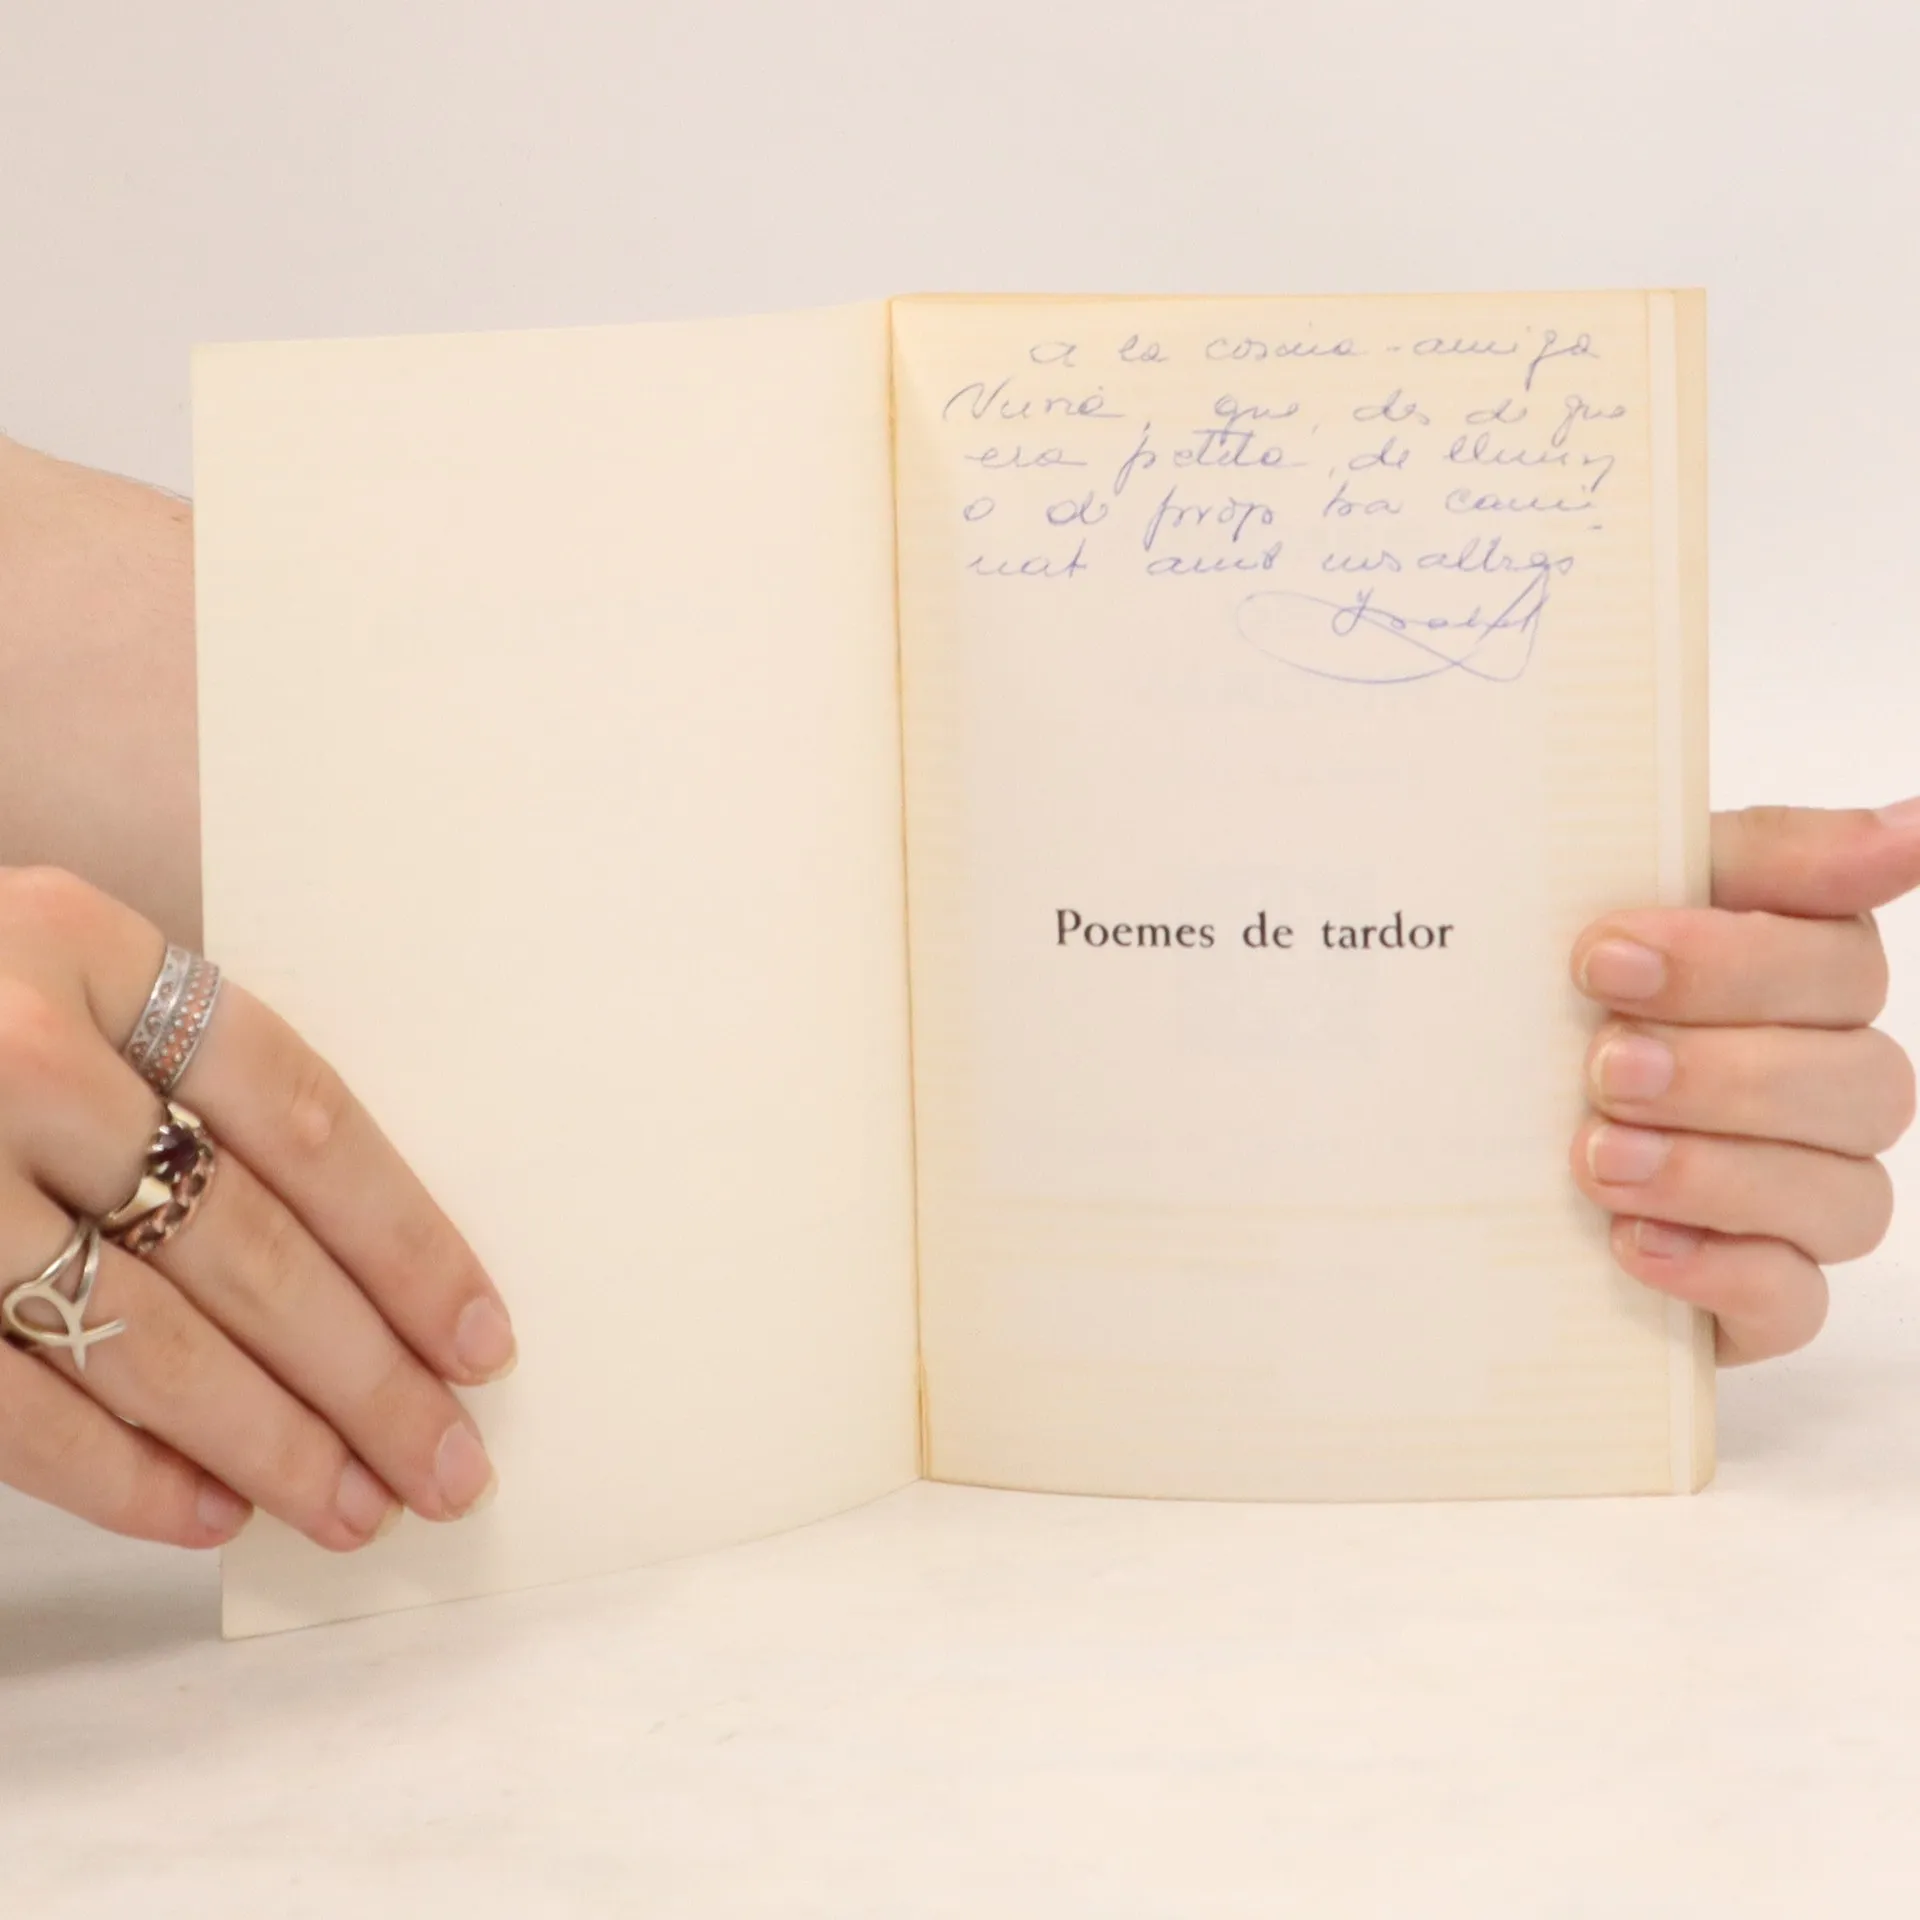 a la cosina-amiga
Nuria, que, des de que
era petita, de lluny
o de pròp ha cami-
nat amb nosaltres
Isabel
Poemes de tardor